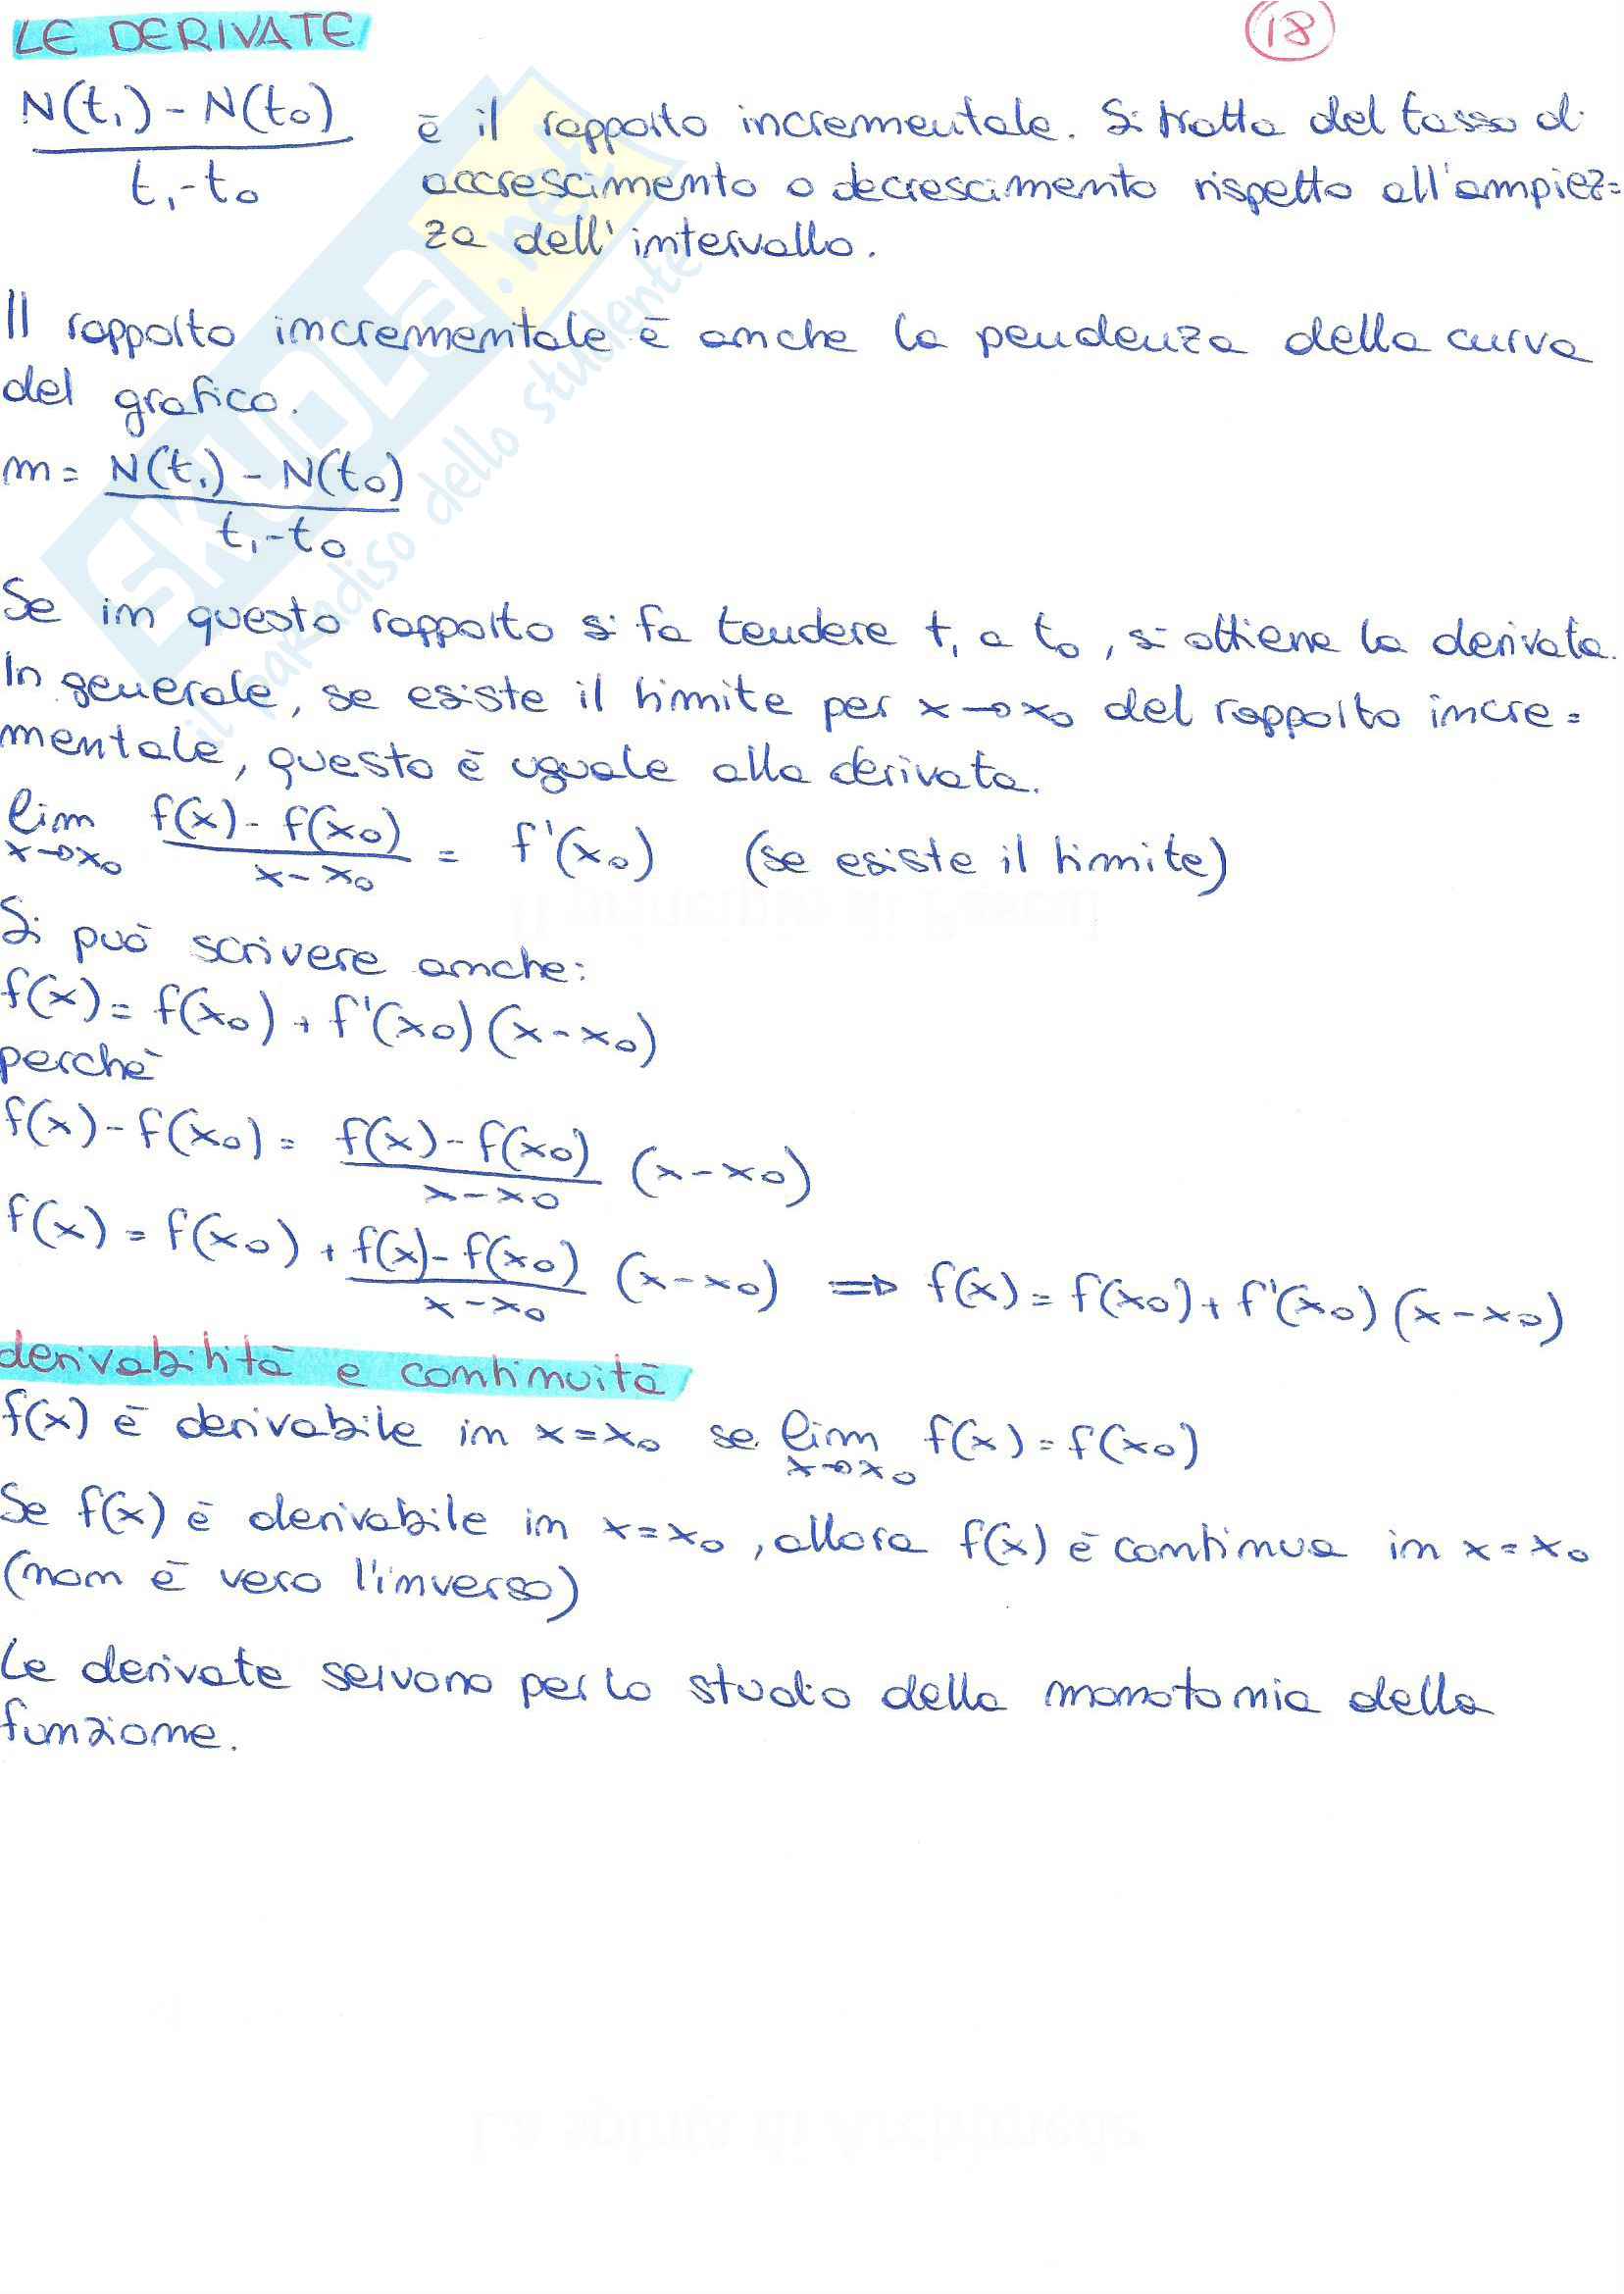 LE DERIVATE
18
N(t₁) - N(t₀) / t₁ - t₀ è il rapporto incrementale. Si tratta del tasso di
accrescimento o decrescimento rispetto all'ampiez=
za dell'intervallo.
Il rapporto incrementale è anche la pendenza della curva
del grafico.
m = N(t₁) - N(t₀) / t₁ - t₀
Se in questo rapporto si fa tendere t₁ a t₀, si ottiene la derivata.
In generale, se esiste il limite per x→x₀ del rapporto incre=
mentale, questo è uguale alla derivata.
lim x→x₀ f(x) - f(x₀) / x - x₀ = f'(x₀) (se esiste il limite)
Si può scrivere anche:
f(x) = f(x₀) + f'(x₀)(x - x₀)
perchè
f(x) - f(x₀) = f(x) - f(x₀) / x - x₀ (x - x₀)
f(x) = f(x₀) + f(x) - f(x₀) / x - x₀ (x - x₀) ⇒ f(x) = f(x₀) + f'(x₀)(x - x₀)
derivabilità e continuità
f(x) è derivabile in x = x₀ se lim x→x₀ f(x) = f(x₀)
Se f(x) è derivabile in x = x₀, allora f(x) è continua in x = x₀
(non è vero l'inverso)
Le derivate servono per lo studio della monotonia della
funzione.
SKUOLA.net
il paradiso dello studente